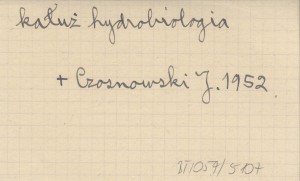 kałuż hydrobiologia
+ Czosnowski J. 1952.